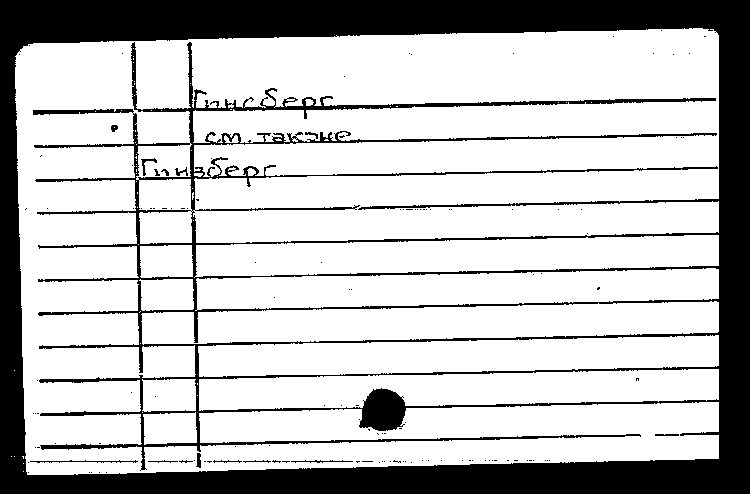 Гинсберг
см. также
Гинзберг